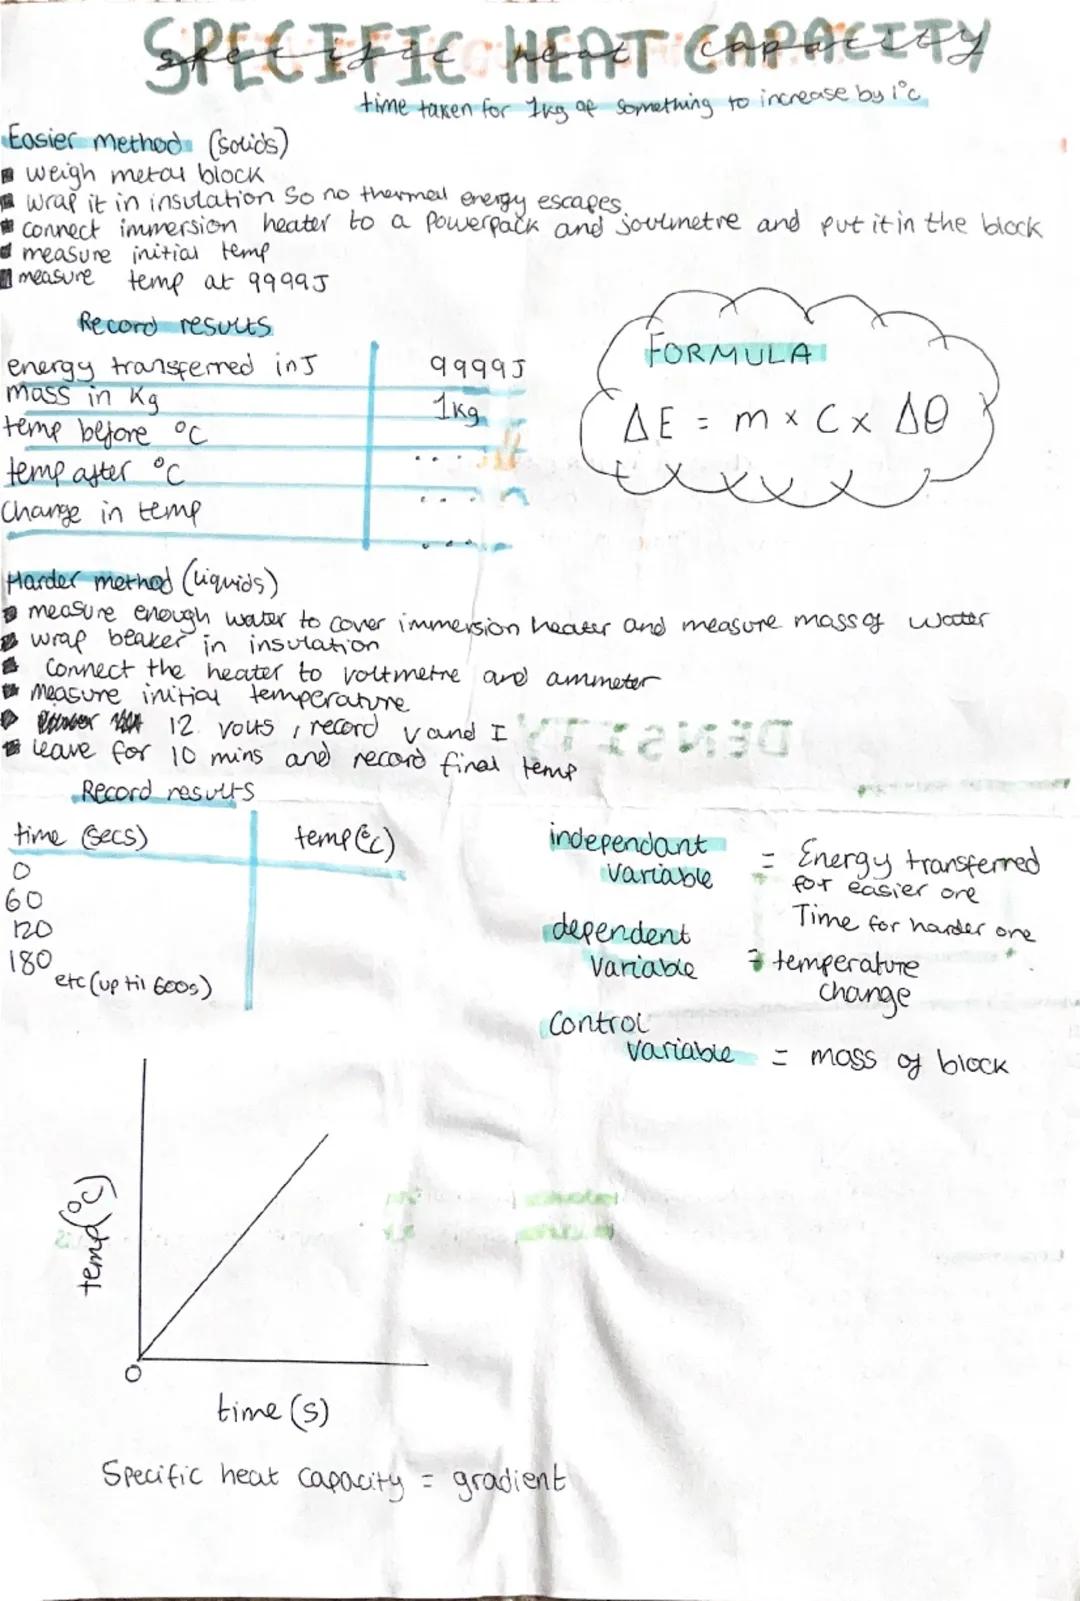 SPECIFIC HEAT CAPACITY
specific heat capacity
time taken for 1kg of something to increase by 1°c
Easier method (solids)
weigh metal block
wrap it in insulation so no thermal energy escapes
connect immersion heater to a powerpack and joulmetre and put it in the block
measure initial temp
measure temp at 9999J
Record results
energy transferred in J 9999J
mass in Kg 1kg
temp before °C ....
temp after °C ....
Change in temp ....
FORMULA
ΔE = m × C × Δθ
Harder method (liquids)
measure enough water to cover immersion heater and measure mass of water
wrap beaker in insulation
Connect the heater to voltmetre and ammeter
Measure initial temperature
12 volts, record V and I
leave for 10 mins and record final temp
DENSITY
Record results
time (secs) temp(°c)
0
60
120
180
etc (up til 600s)
independant variable = Energy transferred
for easier one
Time for harder one
dependent
variable = temperature
change
Control
variable = mass of block
temp(°C)
0
time (s)
Specific heat capacity = gradient